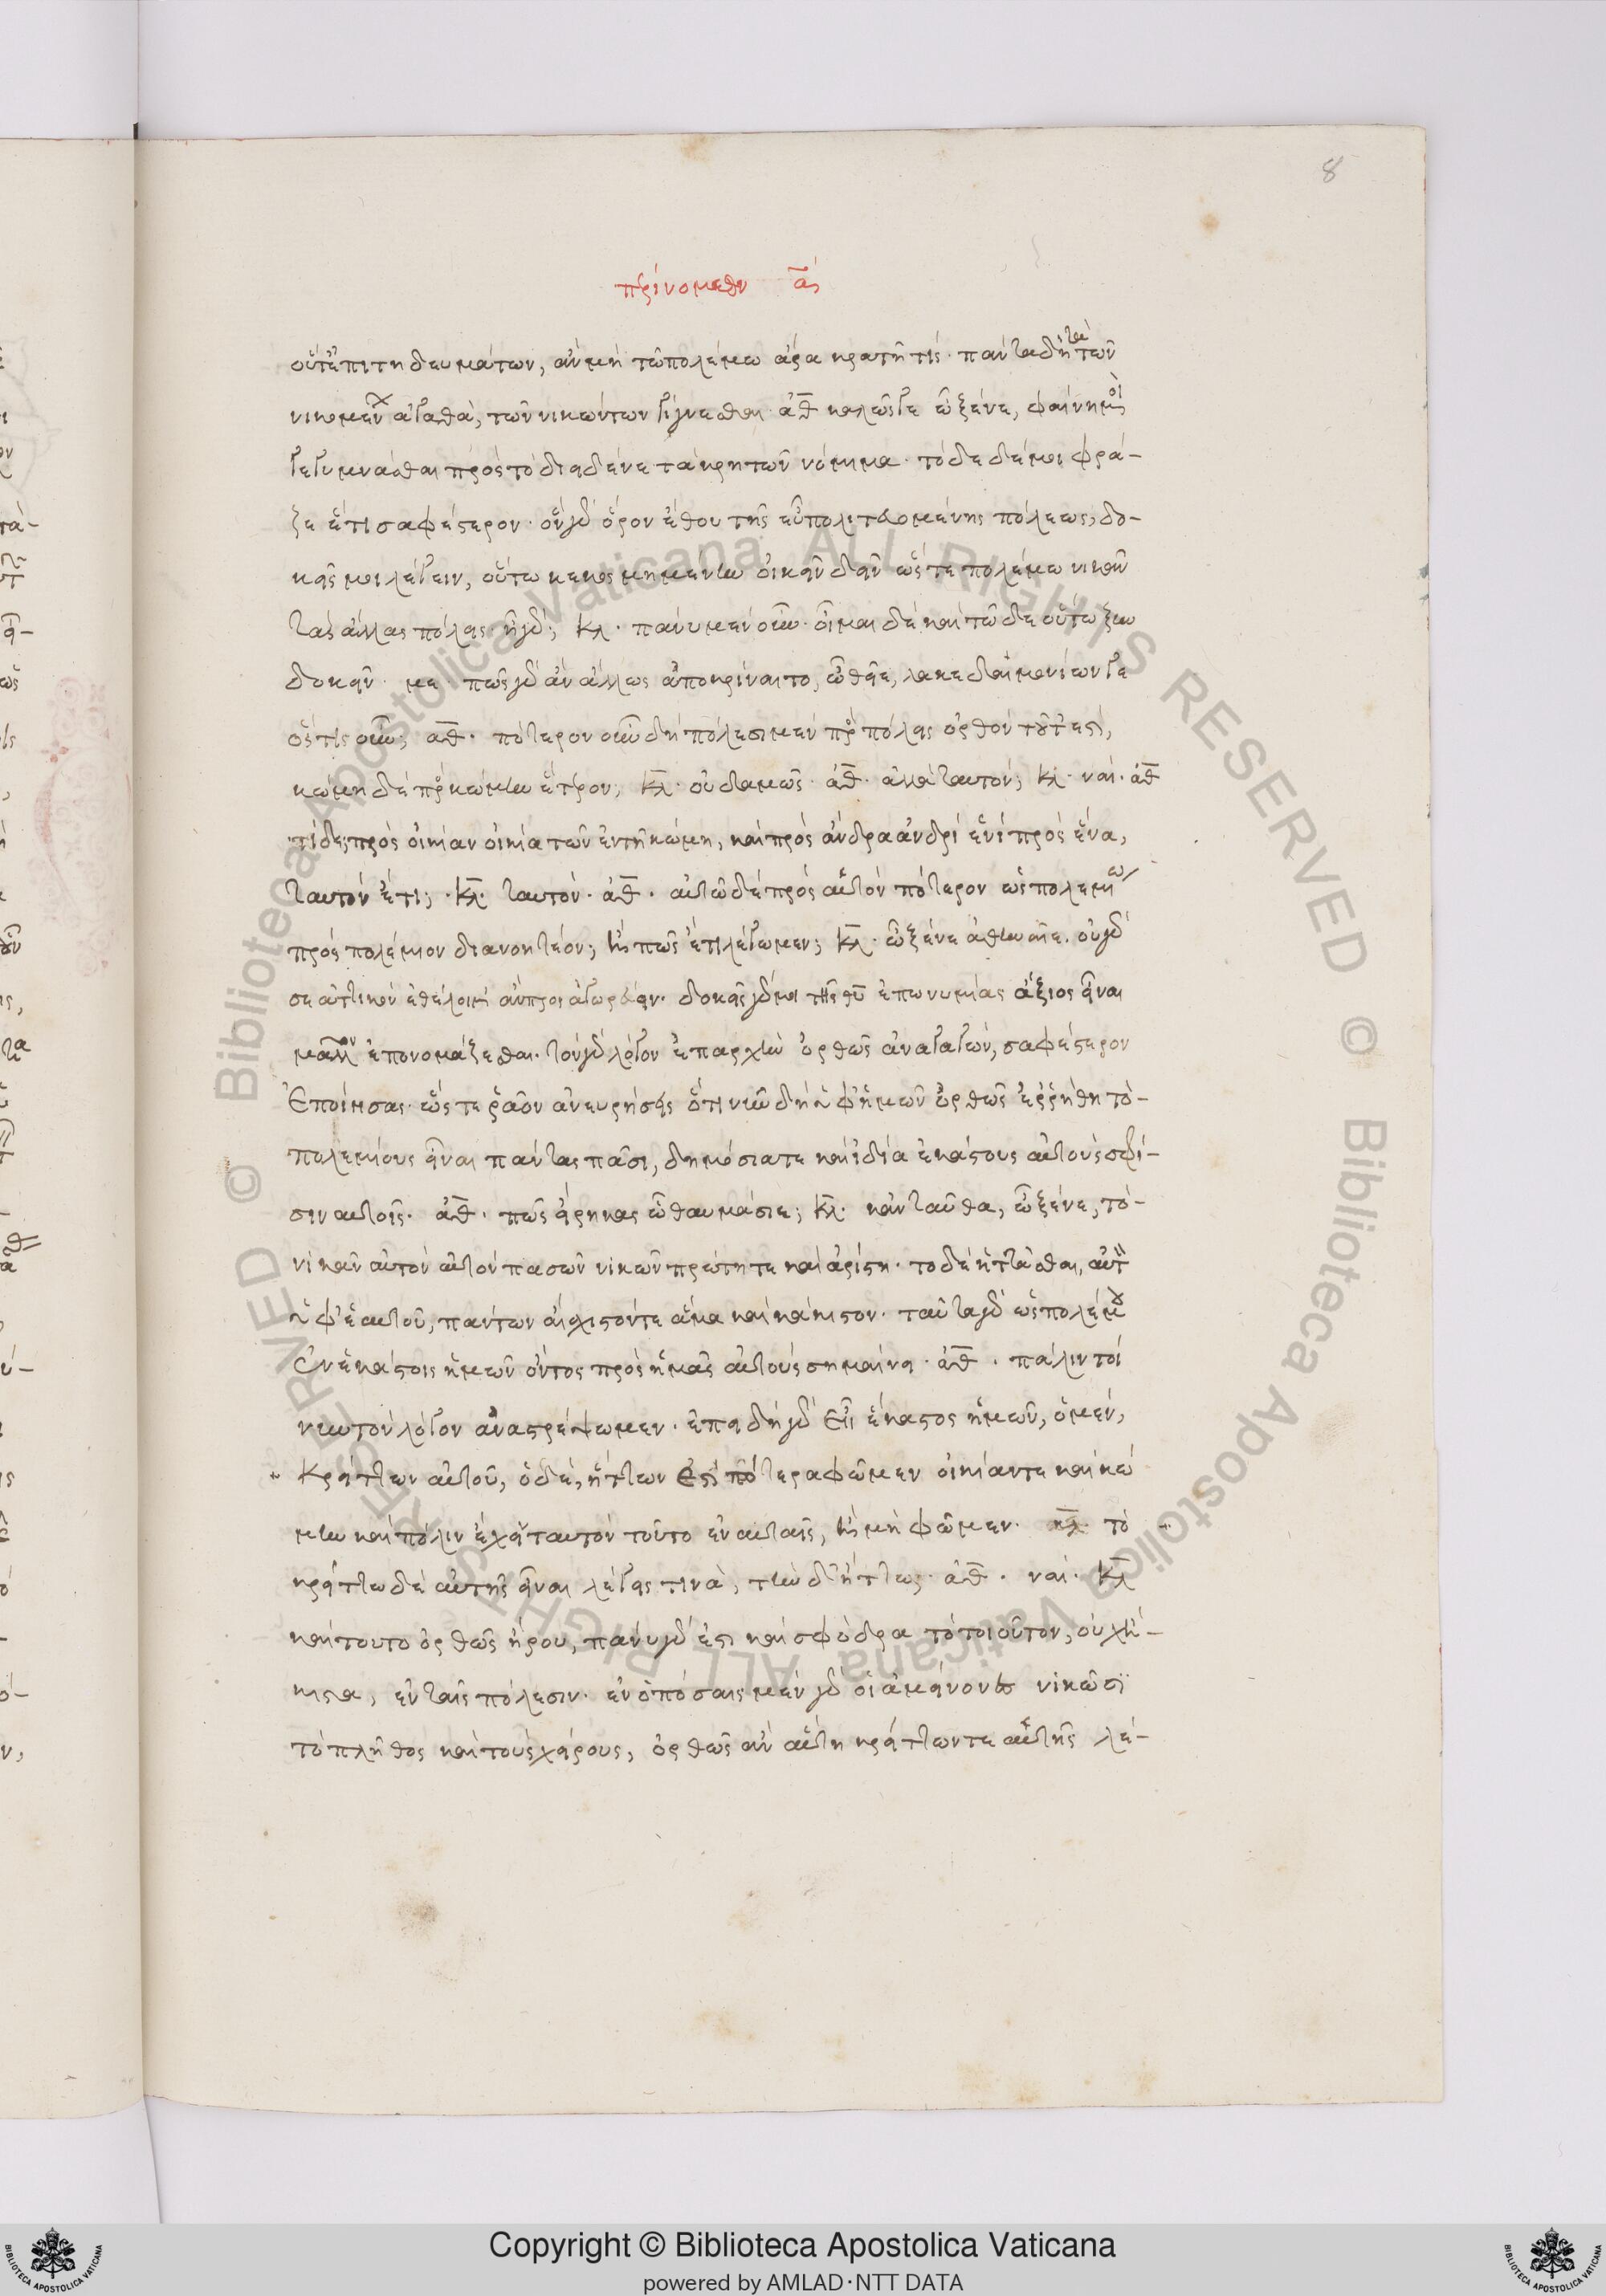 8
περὶ νομοθε ᾱ
οὔτ' ἐπιτηδευμάτων, ἂν μὴ τῶ πολέμω ἄρα κρατῆ τίς· πάντα δὴ τὰ τῶν
νικωμένων ἀγαθὰ, τῶν νικώντων γίγνεσθαι. ἀθ καλῶς γε ὦ ξένε, φαίνη μοὶ
γεγυμνάσθαι πρὸς τὸ διειδέναι τὰ κρητῶν νόμιμα· τόδε δέ μοι φρά-
ζε ἔτι σαφέστερον· ὃν γὰρ ὅρον ἔθου τῆς εὖ πολιτευομένης πόλεως, δο-
κεῖς μοι λέγειν, οὕτω κεκοσμημένην οἰκεῖν δεῖν ὥστε πολέμω νικᾶν
τὰς ἄλλας πόλεις· ἦ γάρ; Κλ. πάνυ μὲν οὖν· οἶμαι δὲ καὶ τῶδε οὕτω ξυν
δοκεῖν· με πῶς γὰρ ἂν ἄλλως ἀποκρίναιτο, ὦ θεῖε, λακεδαιμονίων γε
ὅστις οὖν; αθ. πότερον οὖν δὴ πόλεσι μὲν πρὸς πόλεις ὀρθὸν τοῦτ' ἐστὶ,
κώμη δὲ πρὸς κώμην ἕτερον; Κλ. οὐδαμῶς· ἀθ. ἀλλὰ ταυτόν; Κλ. ναί. ἀθ
τί δε; πρὸς οἰκίαν οἰκία τῶν ἐν τῆ κώμη, καὶ πρὸς ἄνδρα ἀνδρὶ ἑνὶ πρὸς ἕνα,
ταυτὸν ἔτι; Κλ. ταυτόν. ἀθ. αὐτῶ δὲ πρὸς αὑτὸν πότερον ὡς πολεμίω
πρὸς πολέμιον διανοητέον; ἢ πῶς ἔτι λέγωμεν; Κλ. ὦ ξένε ἀθηναῖε. οὐ γάρ
σε ἀττικὸν ἐθέλοιμι ἂν προσαγορεύειν· δοκεῖς γάρ μοι τῆς θῦ ἐπωνυμίας ἄξιος εἶναι
μᾶλλον ἐπονομάζεσθαι. τὸν γὰρ λόγον ἐπ' ἀρχὴν ὀρθῶς ἀναγαγὼν, σαφέστερον
ἐποίησας· ὥστε ῥᾶον ἀνευρήσεις ὅτι νῦν δὴ ὑφ' ἡμῶν ὀρθῶς ἐῤῥήθη τὸ-
πολεμίους εἶναι πάντας πᾶσι, δημόσια τε καὶ ἰδία ἑκάστους αὐτοὺς σφί-
σιν αυτοῖς. ἀθ. πῶς εἴρηκας ὦ θαυμάσιε; Κλ. κἀνταῦθα, ὦ ξένε, τὸ-
νικᾶν αὐτὸν αὑτὸν πασῶν νικῶν πρώτη τε καὶ ἀρίστη· τὸ δὲ ἡττᾶσθαι, αὐτ
ὑφ' ἑαυτοῦ, πάντων αἴσχιστόν τε ἅμα καὶ κάκιστον· ταῦτα γὰρ ὡς πολέμου
ἐν ἑκάστοις ἡμῶν ὄντος πρὸς ἡμᾶς αὐτοὺς σημαίνει. ἀθ. πάλιν τοί
νυν τὸν λόγον ἀναστρέψωμεν· ἐπειδὴ γὰρ εἷς ἕκαστος ἡμῶν, ὁ μὲν,
κρείττων αὑτοῦ, ὁ δὲ, ἥττων ἐστὶ πότερα φῶμεν οἰκίαν τε καὶ κώ
μην καὶ πόλιν ἔχειν ταυτὸν τοῦτο ἐν αὑταῖς, ἢ μὴ φῶμεν. κλ. τὸ
κρείττω δὲ αὑτῆς εἶναι λέγεις τινὰ, τὴν δ' ἥττω; ἀθ. ναί. Κλ
καὶ τοῦτο ὀρθῶς ἤρου, πάνυ γάρ ἐστι καὶ σφόδρα τὸ τοιοῦτον, οὐχ ἥ-
κιστα, ἐν ταῖς πόλεσιν· ἐν ὁπόσαις μὲν γὰρ οἱ ἀμείνονες νικῶσι
τὸ πλῆθος καὶ τοὺς χείρους, ὀρθῶς ἂν αὕτη κρείττων τε αὑτῆς λέ-
Copyright © Biblioteca Apostolica Vaticana
powered by AMLAD·NTT DATA
© Biblioteca Apostolica Vaticana ALL RIGHTS RESERVED © Biblioteca Apostolica Vaticana ALL RIGHTS RESERVED
BIBLIOTECA APOSTOLICA VATICANA
BIBLIOTECA APOSTOLICA VATICANA